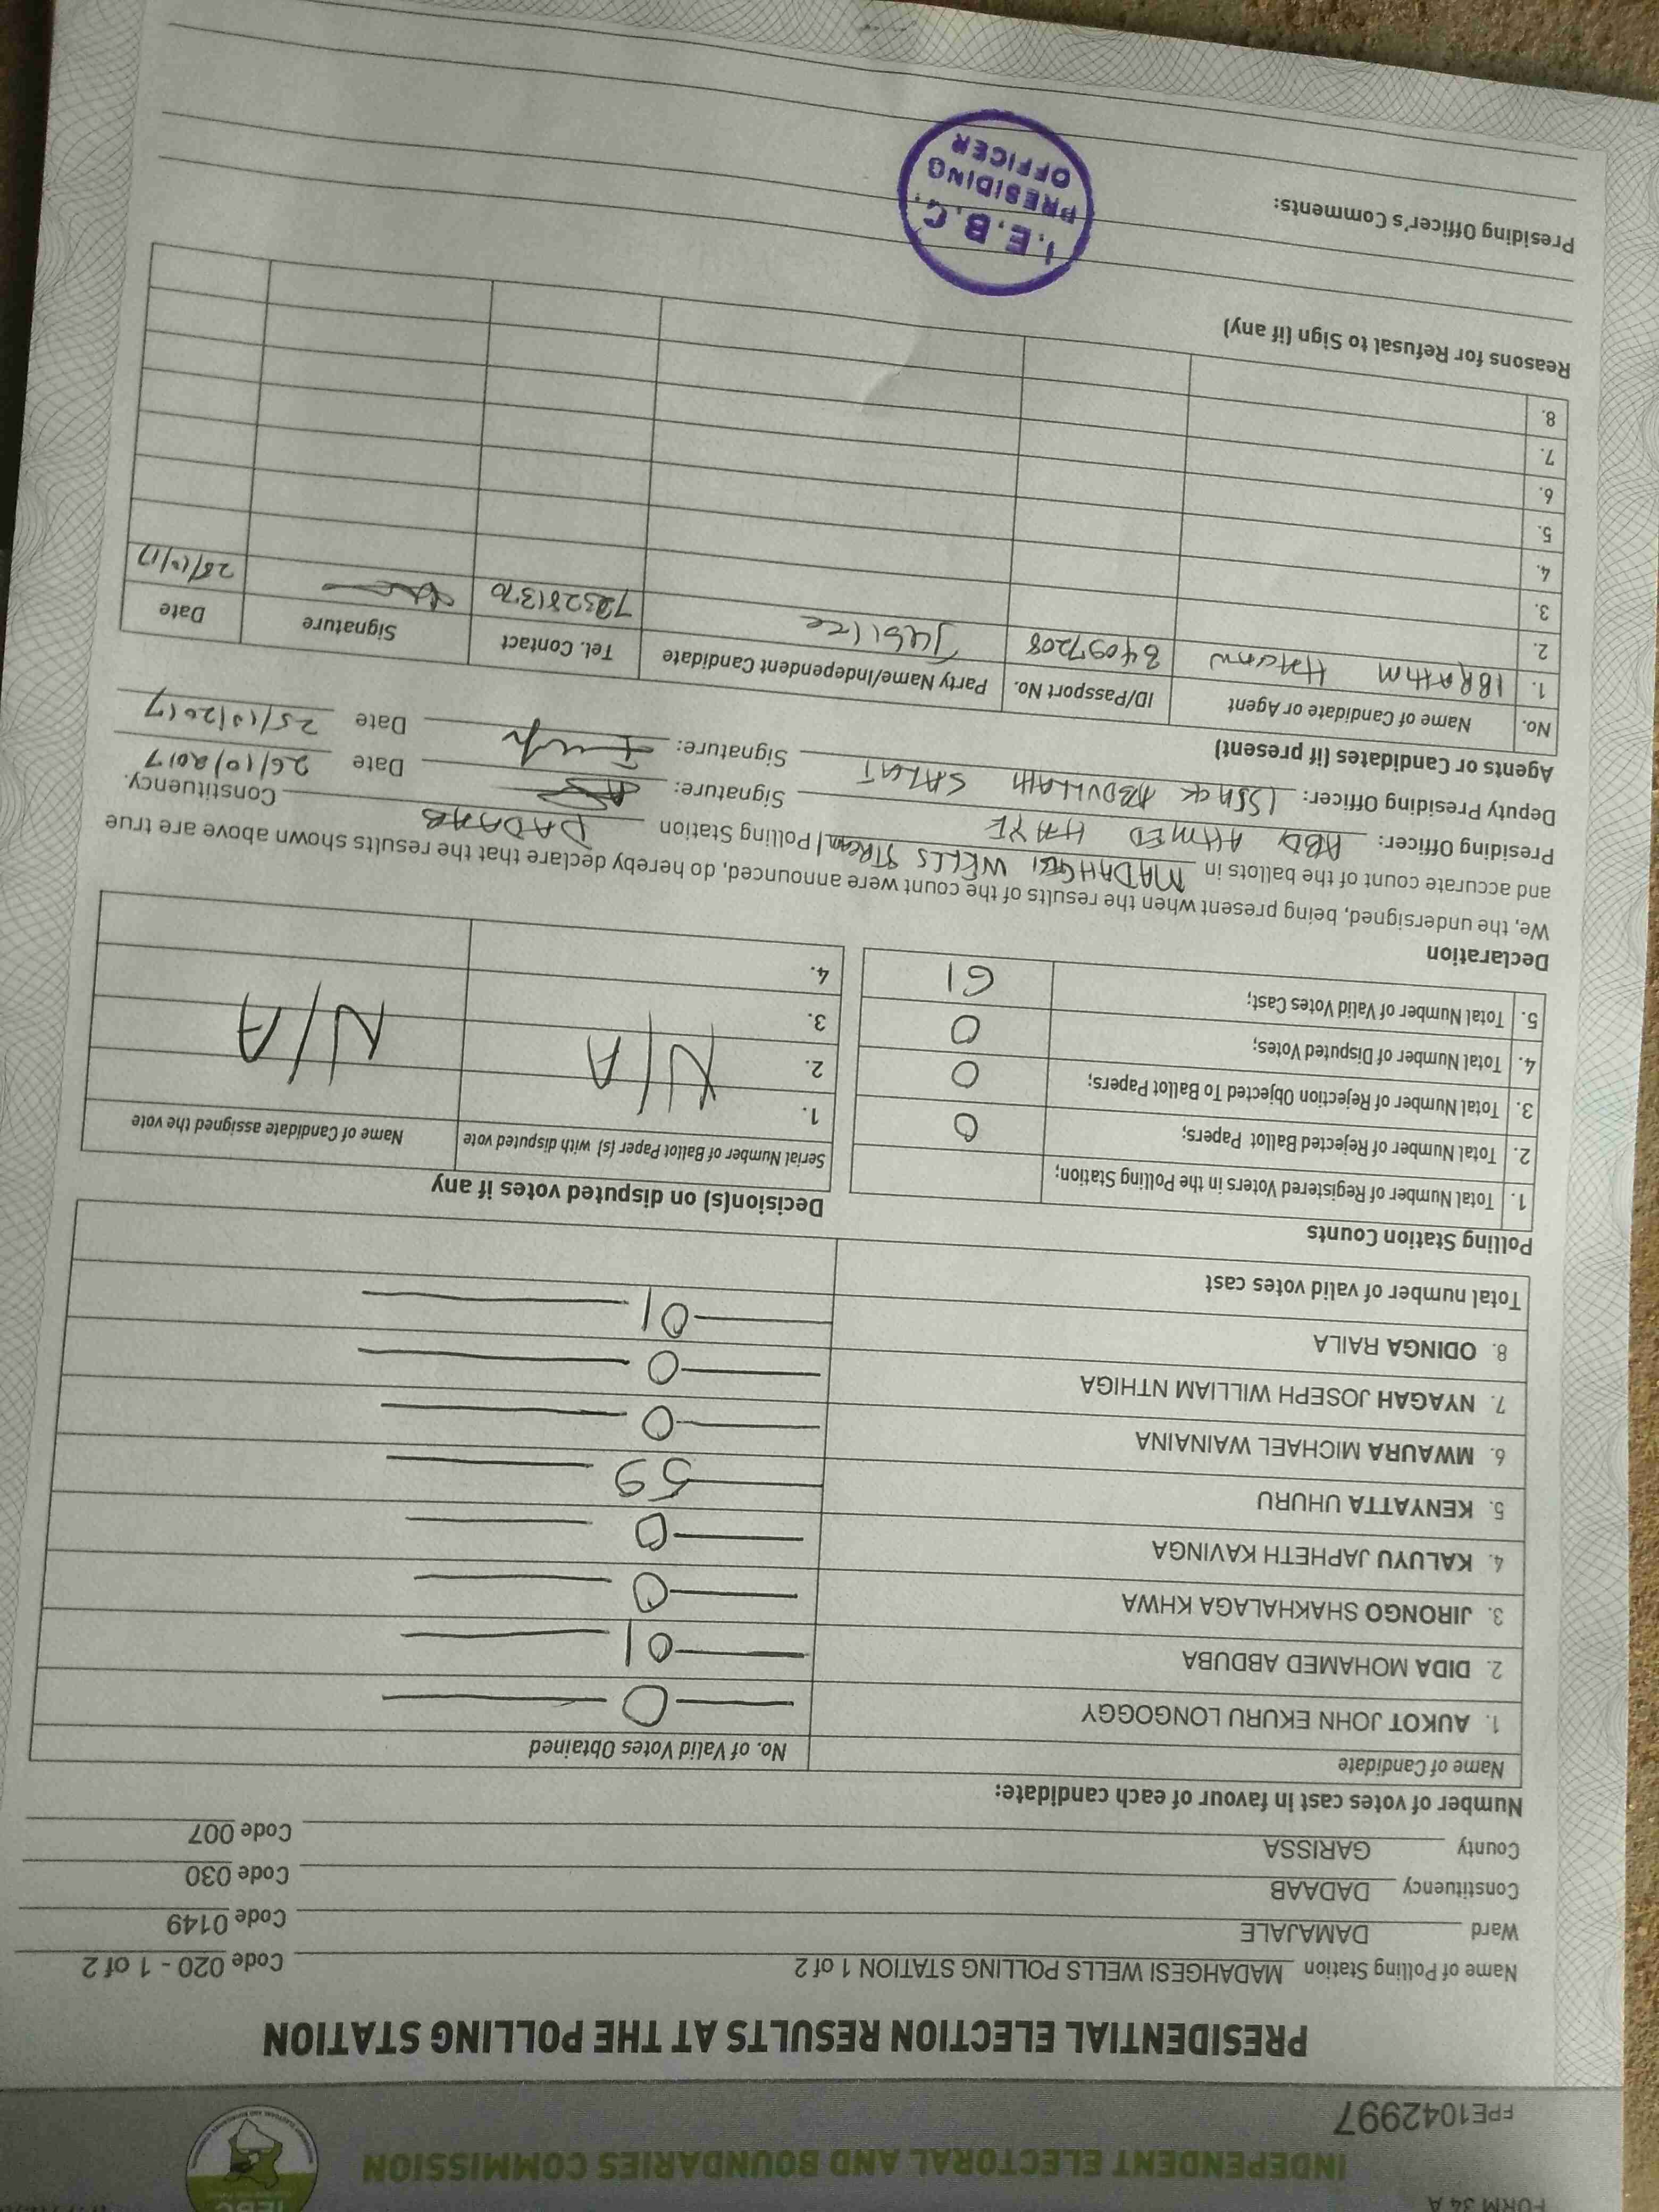 FORM 34 A
IEBC
INDEPENDENT ELECTORAL AND BOUNDARIES COMMISSION
FPE1042997
PRESIDENTIAL ELECTION RESULTS AT THE POLLING STATION
Name of Polling Station MADAHGESI WELLS POLLING STATION 1 of 2 Code 020 - 1 of 2
Ward DAMAJALE Code 0149
Constituency DADAAB Code 030
County GARISSA Code 007
Number of votes cast in favour of each candidate:
Name of Candidate No. of Valid Votes Obtained
1. AUKOT JOHN EKURU LONGOGGY 0
2. DIDA MOHAMED ABDUBA 01
3. JIRONGO SHAKHALAGA KHWA 0
4. KALUYU JAPHETH KAVINGA 0
5. KENYATTA UHURU 59
6. MWAURA MICHAEL WAINAINA 0
7. NYAGAH JOSEPH WILLIAM NTHIGA 0
8. ODINGA RAILA 01
Total number of valid votes cast
Polling Station Counts
1. Total Number of Registered Voters in the Polling Station;
2. Total Number of Rejected Ballot Papers; 0
3. Total Number of Rejection Objected To Ballot Papers; 0
4. Total Number of Disputed Votes; 0
5. Total Number of Valid Votes Cast; 61
Decision(s) on disputed votes if any
Serial Number of Ballot Paper (s) with disputed vote Name of Candidate assigned the vote
1.
2. N/A N/A
3.
4.
Declaration
We, the undersigned, being present when the results of the count were announced, do hereby declare that the results shown above are true
and accurate count of the ballots in MADAHGESI WELLS STREAM 1 Polling Station DADAAB Constituency.
Presiding Officer: ABDI AHMED HAYE Signature: Date 26/10/2017
Deputy Presiding Officer: ISSACK ABDULLAHI SALAT Signature: Date 25/10/2017
Agents or Candidates (if present)
No. Name of Candidate or Agent ID/Passport No. Party Name/Independent Candidate Tel. Contact Signature Date
1. IBRAHIM 34097208 Jubilee
2.
3.
4.
5.
6.
7.
8.
Reasons for Refusal to Sign (if any)
Presiding Officer's Comments:
I.E.B.C.
PRESIDING
OFFICER